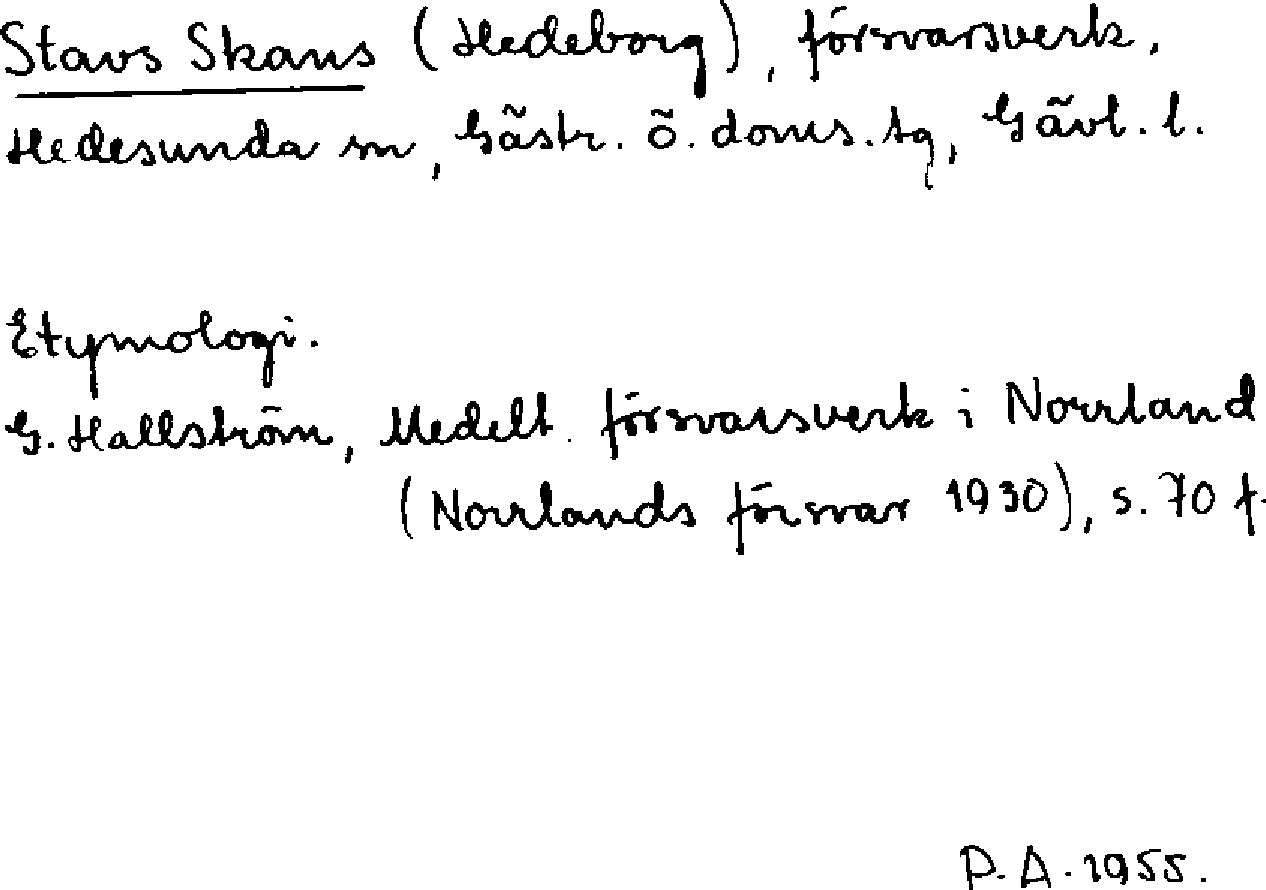 Stavs Skans (Hedeborg), försvarsverk,
Hedesunda sn, Gästr. ö. doms.tg, Gävl. l.
Etymologi.
G. Hallström, Medelt. försvarsverk i Norrland
(Norrlands försvar 1930), s. 70 f.
P. A. 1955.